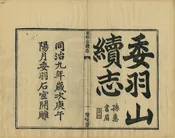 委羽山
續志
孫熹
署眉
同治九年歲次庚午
陽月委羽石室開雕